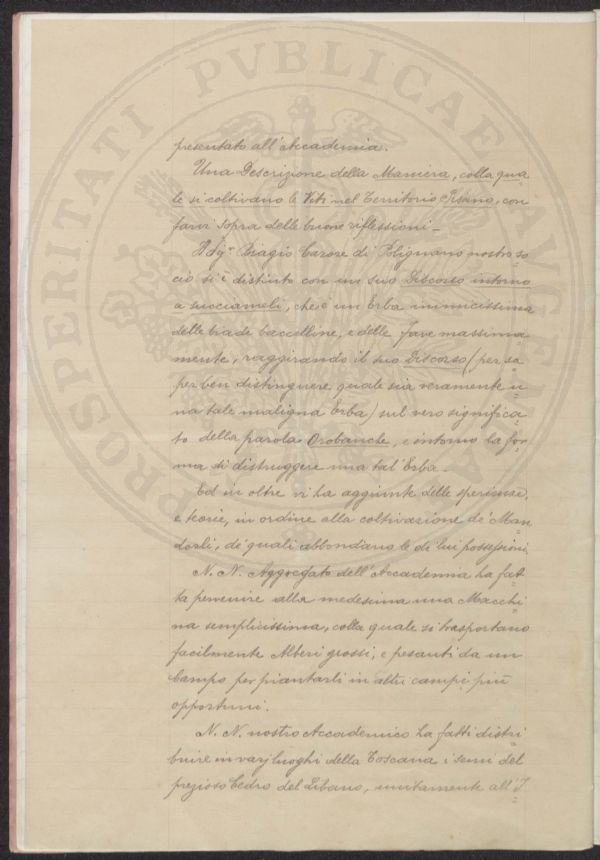 PROSPERITATI PVBLICAE AVGENDAE
presentato all'Accademia.
Una Descrizione della Maniera, colla qua
le si coltivano le Viti nel Territorio Pisano, con
farvi sopra delle buone riflessioni –
Il Sig.r Biagio di Polignano nostro so
cio si è distinto con un suo Discorso intorno
a succiameli, che è un Erba inimicissima
delle biade baccelline, e delle Fave massima
mente, raggirando il suo Discorso (per sa
per ben distinguere quale sia veramente u
na tale maligna Erba) sul vero significa
to della parola Orobanche, e intorno la for
ma di distruggere una tal'Erba –
Ed in oltre vi ha aggiunte delle sperienze,
e teorie, in ordine alla coltivazione de' Man
dorli, de' quali abbondano le di lui possessioni
N. N. Aggregato dell'Accademia ha fat
ta pervenire alla medesima una Macchi
na semplicissima, colla quale si trasportano
facilmente Alberi grossi, e pesanti da un
Campo per piantarli in altri campi più
opportuni.
N. N. nostro Accademico ha fatti distri
buire in varj luoghi della Toscana i semi del
prezioso Cedro del Libano, unitamente all'I